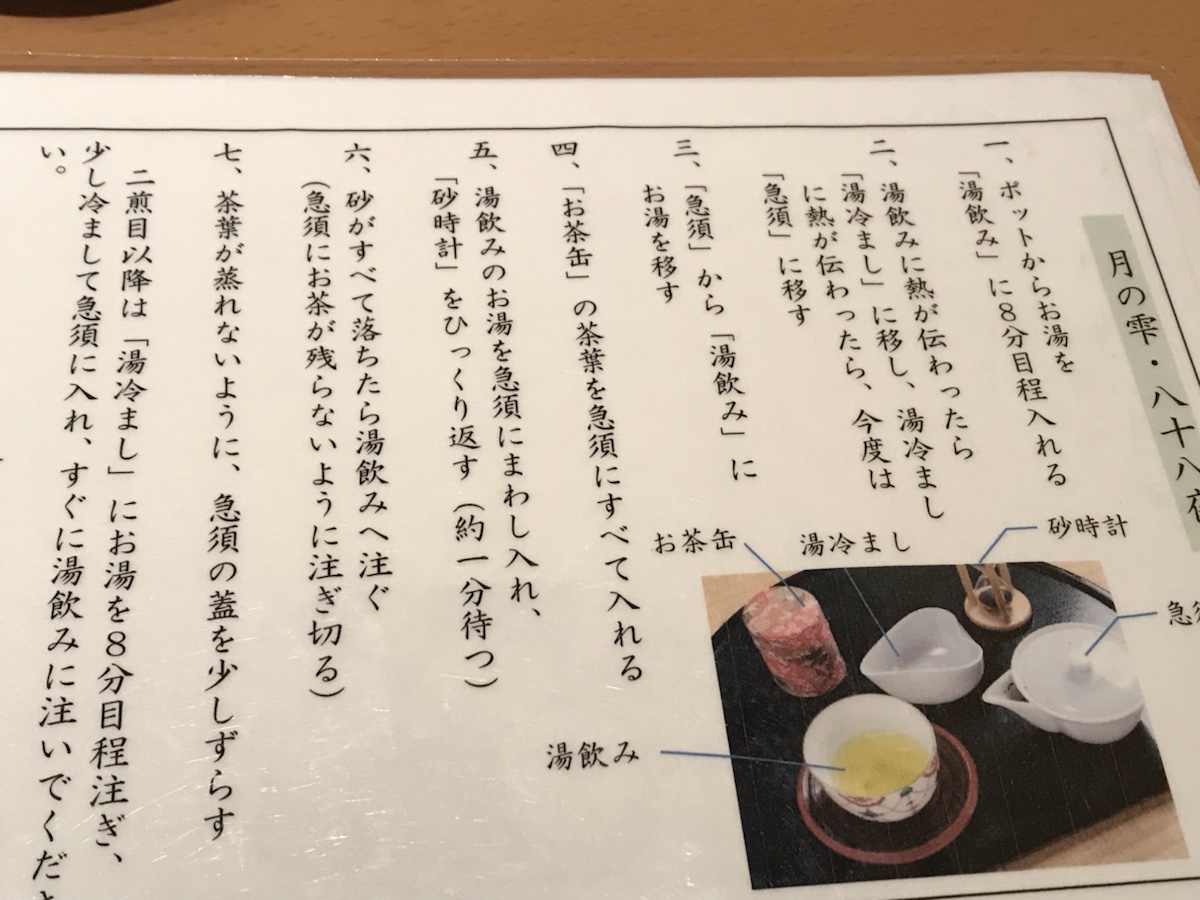 月の雫・八十八夜
一、ポットからお湯を
「湯飲み」に8分目程入れる
二、湯飲みに熱が伝わったら
「湯冷まし」に移し、湯冷まし
に熱が伝わったら、今度は
「急須」に移す
三、「急須」から「湯飲み」に
お湯を移す
四、「お茶缶」の茶葉を急須にすべて入れる
五、湯飲みのお湯を急須にまわし入れ、
「砂時計」をひっくり返す(約一分待つ)
六、砂がすべて落ちたら湯飲みへ注ぐ
(急須にお茶が残らないように注ぎ切る)
七、茶葉が蒸れないように、急須の蓋を少しずらす
二煎目以降は「湯冷まし」にお湯を8分目程注ぎ、
少し冷まして急須に入れ、すぐに湯飲みに注いでくださ
い。
砂時計
湯冷まし
お茶缶
急須
湯飲み